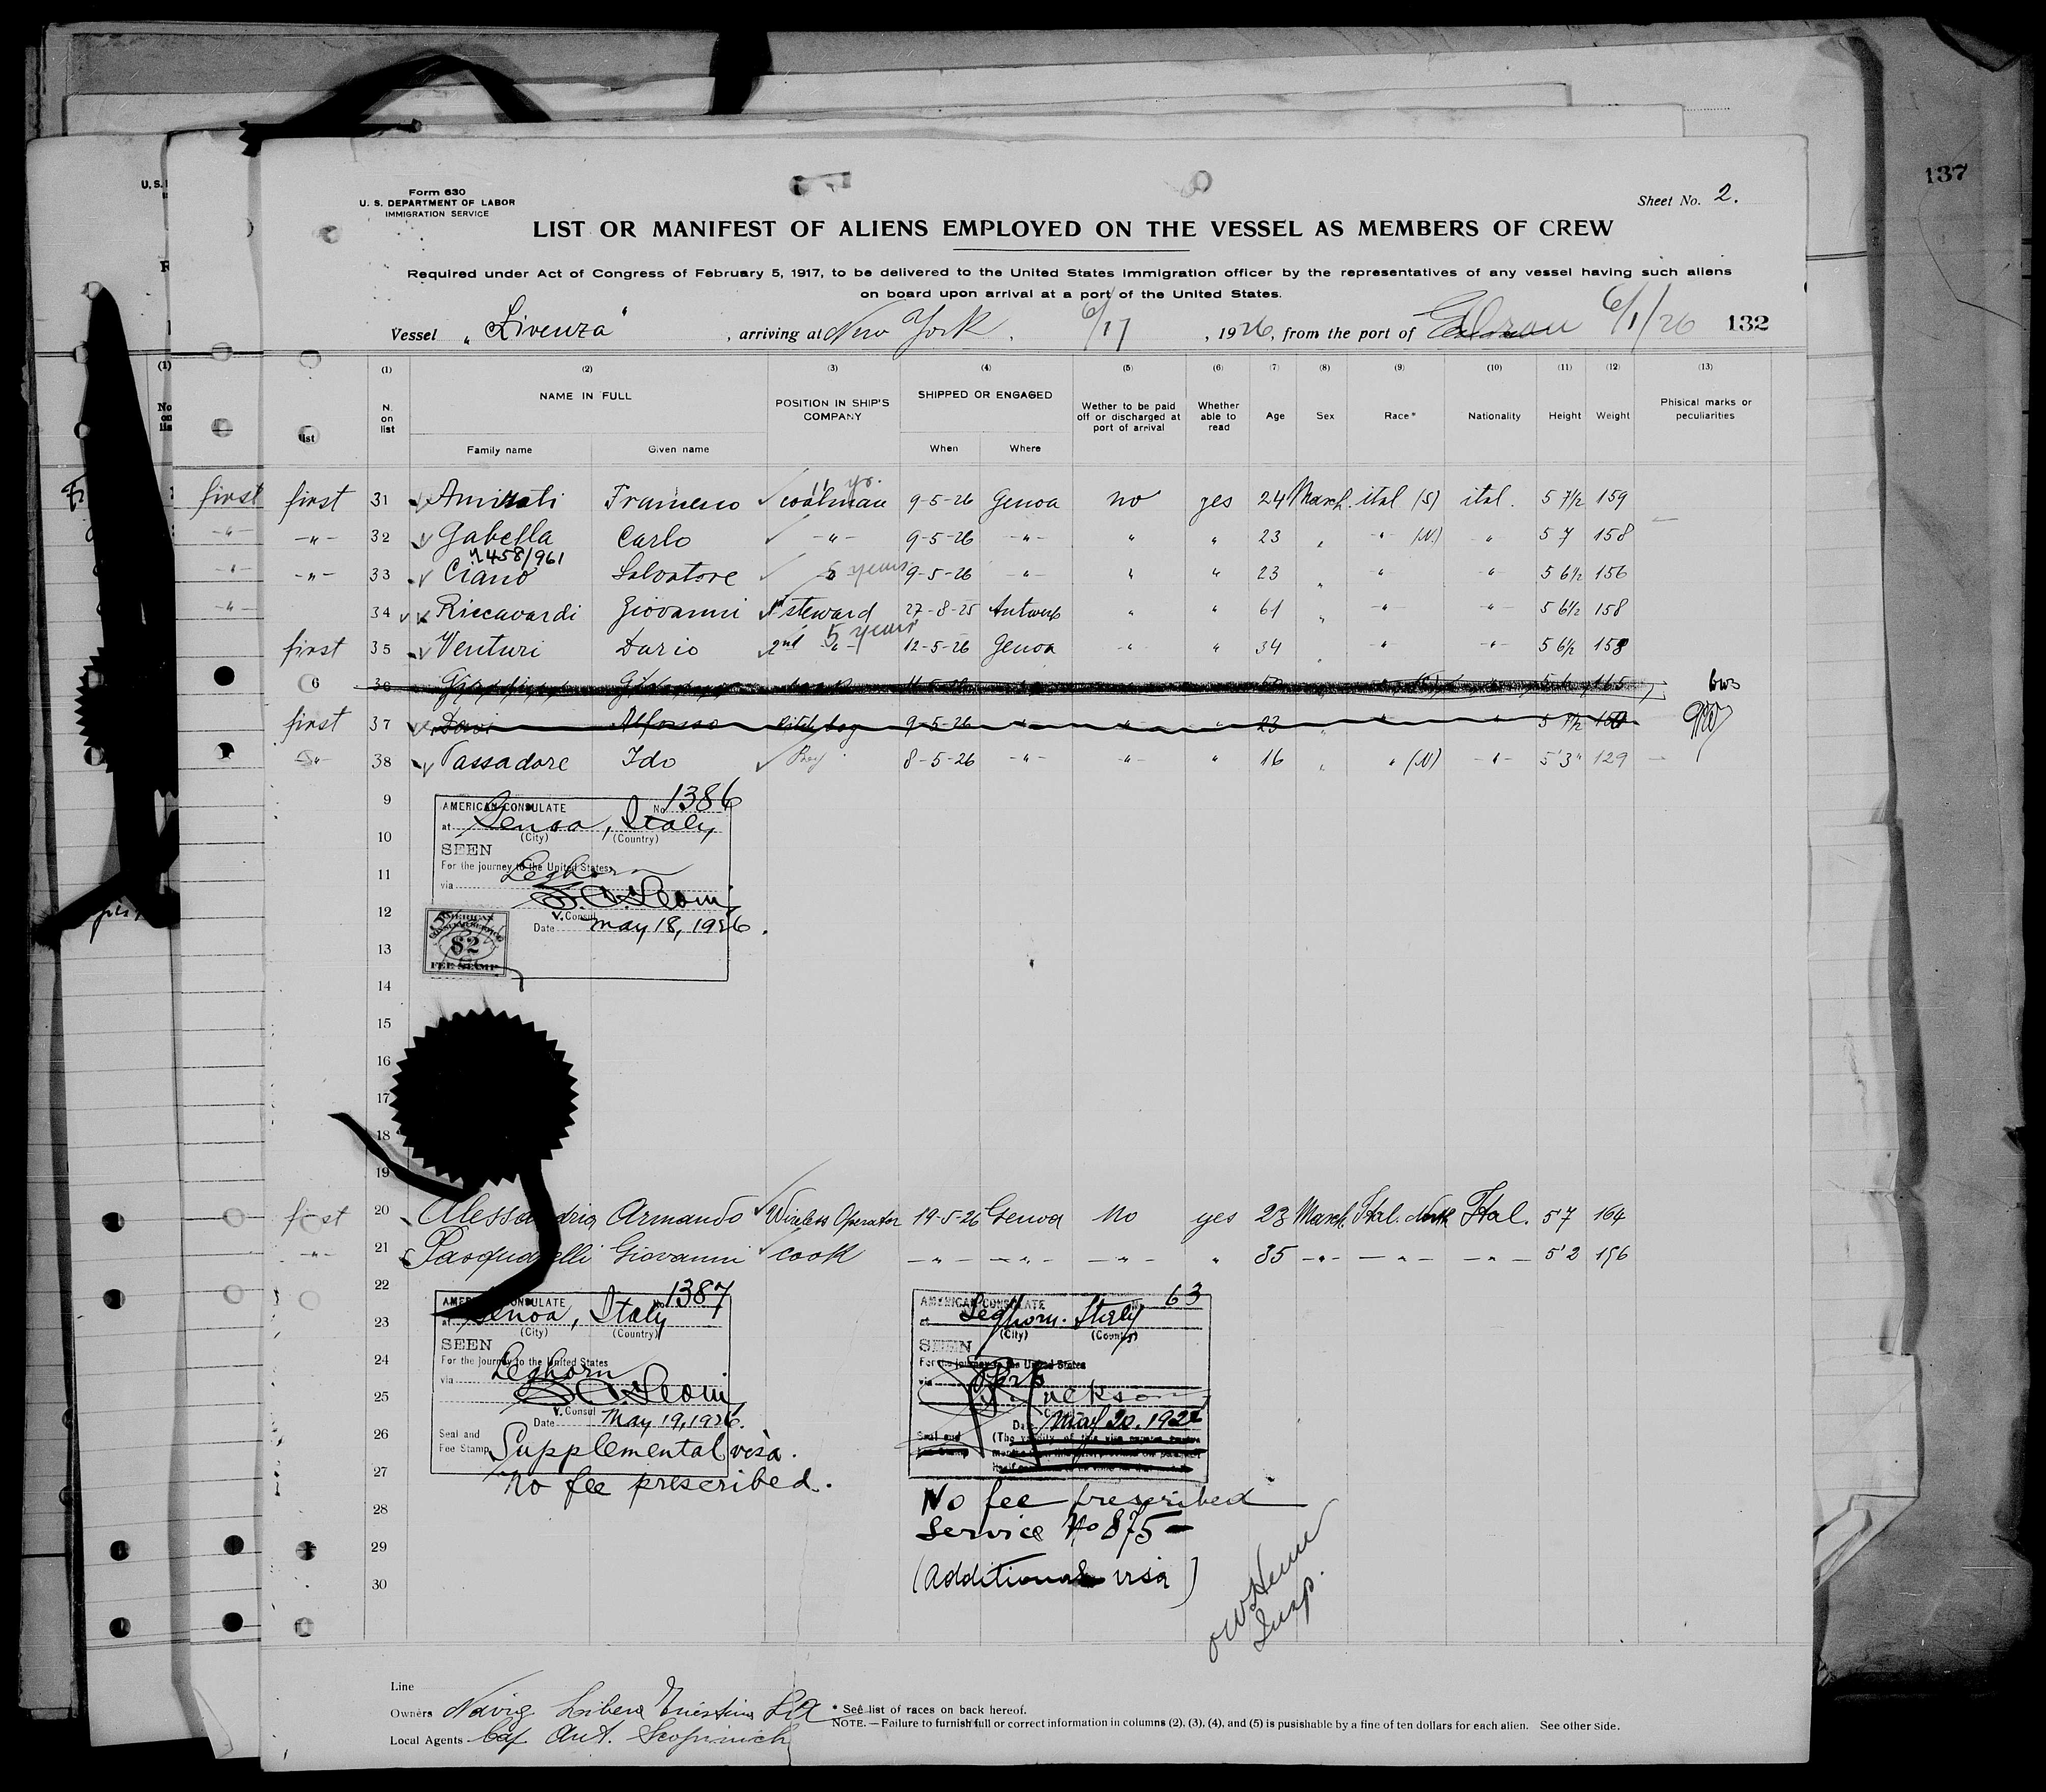 137
Form 630
U. S. DEPARTMENT OF LABOR
IMMIGRATION SERVICE
Sheet No. 2.
LIST OR MANIFEST OF ALIENS EMPLOYED ON THE VESSEL AS MEMBERS OF CREW
Required under Act of Congress of February 5, 1917, to be delivered to the United States immigration officer by the representatives of any vessel having such aliens
on board upon arrival at a port of the United States.
Vessel „Livenza“, arriving at New York. 6/17, 1926, from the port of Oran 6/1/26 132
(1) (2) (3) (4) (5) (6) (7) (8) (9) (10) (11) (12) (13)
N. on list NAME IN FULL POSITION IN SHIP'S COMPANY SHIPPED OR ENGAGED Wether to be paid off or discharged at port of arrival Whether able to read Age Sex Race* Nationality Height Weight Phisical marks or peculiarities
Family name Given name When Where
first first 31 Francesco coalman 11 yr. 9-5-26 Genoa no yes 24 Masch. ital (S) ital. 5 7½ 159
-"- -"- 32 Gabella Carlo -"- 9-5-26 -"- " " 23 " -"- (N) " 5 7 158
n.458/961
-"- -"- 33 Ciano Salvatore 5 years 9-5-26 -"- " " 23 " -"- -"- 5 6½ 156
-"- 34 Riccavardi Giovanni 1st steward 27-8-25 Antwerp " " 61 " -"- -"- 5 6½ 158
first 35 Venturi Dario 2nd -"- 5 years 12-5-26 Genoa -"- " 34 " -"- -"- 5 6½ 158
36 165
first 37 Alfonso 9-5-26 -"- " " 23 " " " 5 7½ 150
-"- 38 Passadore Ido Boy 8-5-26 -"- -"- " 16 " " (N) -"- 5'3" 129
9
10
11
12
13
14
15
16
17
18
19
AMERICAN CONSULATE No. 1386
at Genoa, Italy
(City) (Country)
SEEN
For the journey to the United States
via Leghorn
V. Consul
Date May 18, 1926.
AMERICAN CONSULAR SERVICE
$2
FEE STAMP
first 20 Alessandria Armando Wireless Operator 19-5-26 Genoa No yes 23 Masch. Ital. North Ital. 5'7 164
-"- 21 Pasquarelli Giovanni cook -"- -"- -"- " 35 -"- -"- -"- 5'2 156
22
23
24
25
26
27
28
29
30
AMERICAN CONSULATE No. 1387
at Genoa, Italy
(City) (Country)
SEEN
For the journey to the United States
via Leghorn
V. Consul
Date May 19, 1926.
Seal and
Fee Stamp
Supplemental visa.
No fee prescribed.
AMERICAN CONSULATE 63
at Leghorn. Italy
(City) (Country)
SEEN
For the journey to the United States
via
Date May 20. 192
Seal and
Fee Stamp
No fee prescribed
Service No 875-
(Additional visa)
Insp.
Line
Owners Navig. Libera Triestina S.A.
Local Agents Cap Ant. Scopinich
* See list of races on back hereof.
NOTE. — Failure to furnish full or correct information in columns (2), (3), (4), and (5) is pusishable by a fine of ten dollars for each alien. See other side.